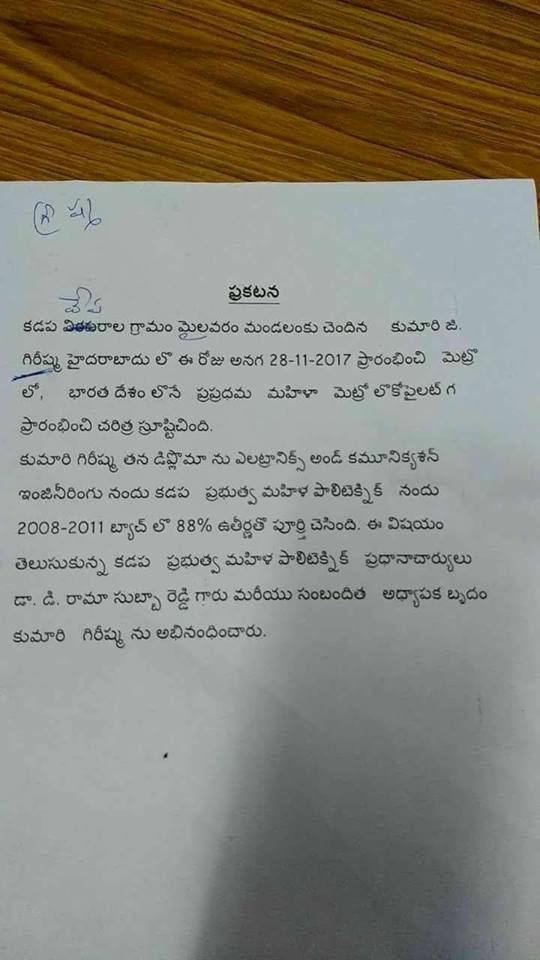 ప్రకటన
వేప
కడప రాల గ్రామం మైలవరం మండలంకు చెందిన కుమారి జి.
గిరీష్మ హైదరాబాదు లొ ఈ రోజు అనగ 28-11-2017 ప్రారంభించి మెట్రొ
లో, భారత దేశం లొనే ప్రప్రధమ మహిళా మెట్రో లొకోపైలట్ గ
ప్రారంభించి చరిత్ర స్రూష్టిచింది.
కుమారి గిరీష్మ తన డిప్లొమా ను ఎలట్రానిక్స్ అండ్ కమూనిక్యశన్
ఇంజినీరింగు నందు కడప ప్రభుత్వ మహిళ పాలిటెక్నిక్ నందు
2008-2011 బ్యాచ్ లొ 88% ఉతీర్ణతొ పూర్తి చెసింది. ఈ విషయం
తెలుసుకున్న కడప ప్రభుత్వ మహిళ పాలిటెక్నిక్ ప్రధానాచార్యులు
డా. డి. రామా సుబ్బా రెడ్డి గారు మరీయు సంబందిత అధ్యాపక బృదం
కుమారి గిరీష్మ ను అభినంధించారు.